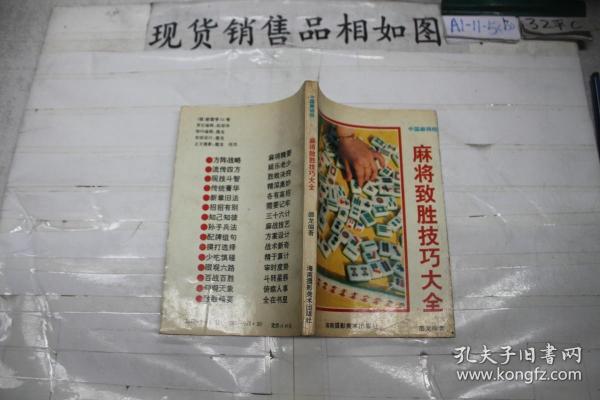 现货销售品相如图
A1-11-5
32开
中国麻将经
麻将致胜技巧大全
图龙编著
海南摄影美术出版社
中国麻将经
麻将致胜技巧大全
海南摄影美术出版社
●方阵战略 麻将精要
●流传四方 娱乐老少
●现战斗智 胜败决窍
●传统奢华 精深奥妙
●新章旧法 各有高招
●招招有别 需要记牢
●知己知彼 三十六计
●孙子兵法 麻战技艺
●配牌组句 方案设计
●摸打选择 战术新奇
●少吃慎碰 精于算计
●眼观六路 审时度势
●百战百胜 斗转星移
●仰观天象 俯瞰人事
全在书里
孔夫子旧书网
www.kongfz.com